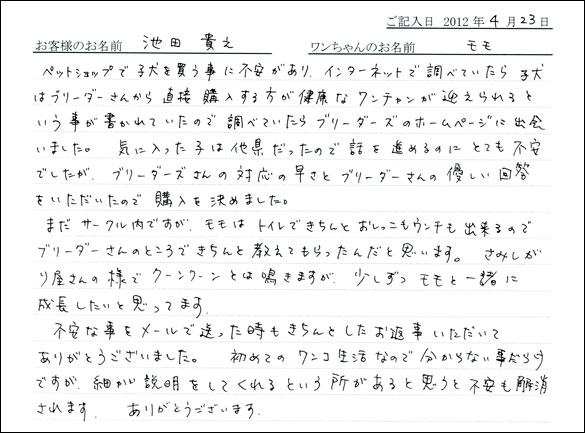 ご記入日 2012年4月23日
お客様のお名前 池田 貴之 ワンちゃんのお名前 モモ
ペットショップで子犬を買う事に不安があり、インターネットで調べていたら子犬
はブリーダーさんから直接購入する方が健康なワンチャンが迎えられると
いう事が書かれていたので調べていたらブリーダーズのホームページに出会
いました。 気に入った子は他県だったので話を進めるのにとても不安
でしたが、ブリーダーズさんの対応の早さとブリーダーさんの優しい回答
をいただいたので購入を決めました。
まだサークル内ですが、モモはトイレできちんとおしっこもウンチも出来るので
ブリーダーさんのところできちんと教えてもらったんだと思います。 さみしが
り屋さんの様でクーンクーンとは鳴きますが、少しずつモモと一緒に
成長したいと思ってます。
不安な事をメールで送った時もきちんとしたお返事いただいて
ありがとうございました。 初めてのワンコ生活なので分からない事だらけ
ですが、細かい説明をしてくれるという所があると思うと不安も解消
されます。 ありがとうございます。